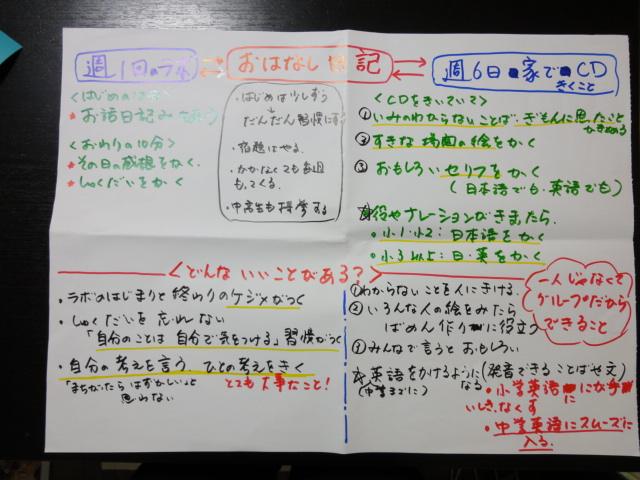 週1回のラボ
おはなし日記
週6日家でCD
きくこと
<はじめの10分>
★お話日記み
<おわりの10分>
★その日の感想をかく.
★しゅくだいをかく
・はじめは少しずつ
だんだん習慣にする
・宿題はやる.
・かかなくても毎週
もってくる.
・中高生も
<CDをきいていて>
①いみのわからないことば.ぎもんに思ったこと
②すきな場面の絵をかく
③おもしろいセリフをかく
(日本語でも英語でも)
役やナレーションがきまったら.
・小1・小2:日本語をかく
・小3以上:日・英をかく
<どんないいことがある?>
・ラボのはじまりと終わりのケジメがつく
・しゅくだいを忘れない
「自分のことは自分で気をつける」習慣がつく
・自分の考えを言う.ひとの考えをきく
「まちがったらはずかしい」と
思わない
とても大事なこと!
一人じゃなくて
グループだから
できること
①わからないことを人にきける.
②いろんな人の絵をみたら
ばめん作りに役立つ
③みんなで言うとおもしろい
英語をかけるように(発音できることばや文)
(中学までに)
なる
・小学英語に
いしきなくす
・中学英語にスムーズに
入る.